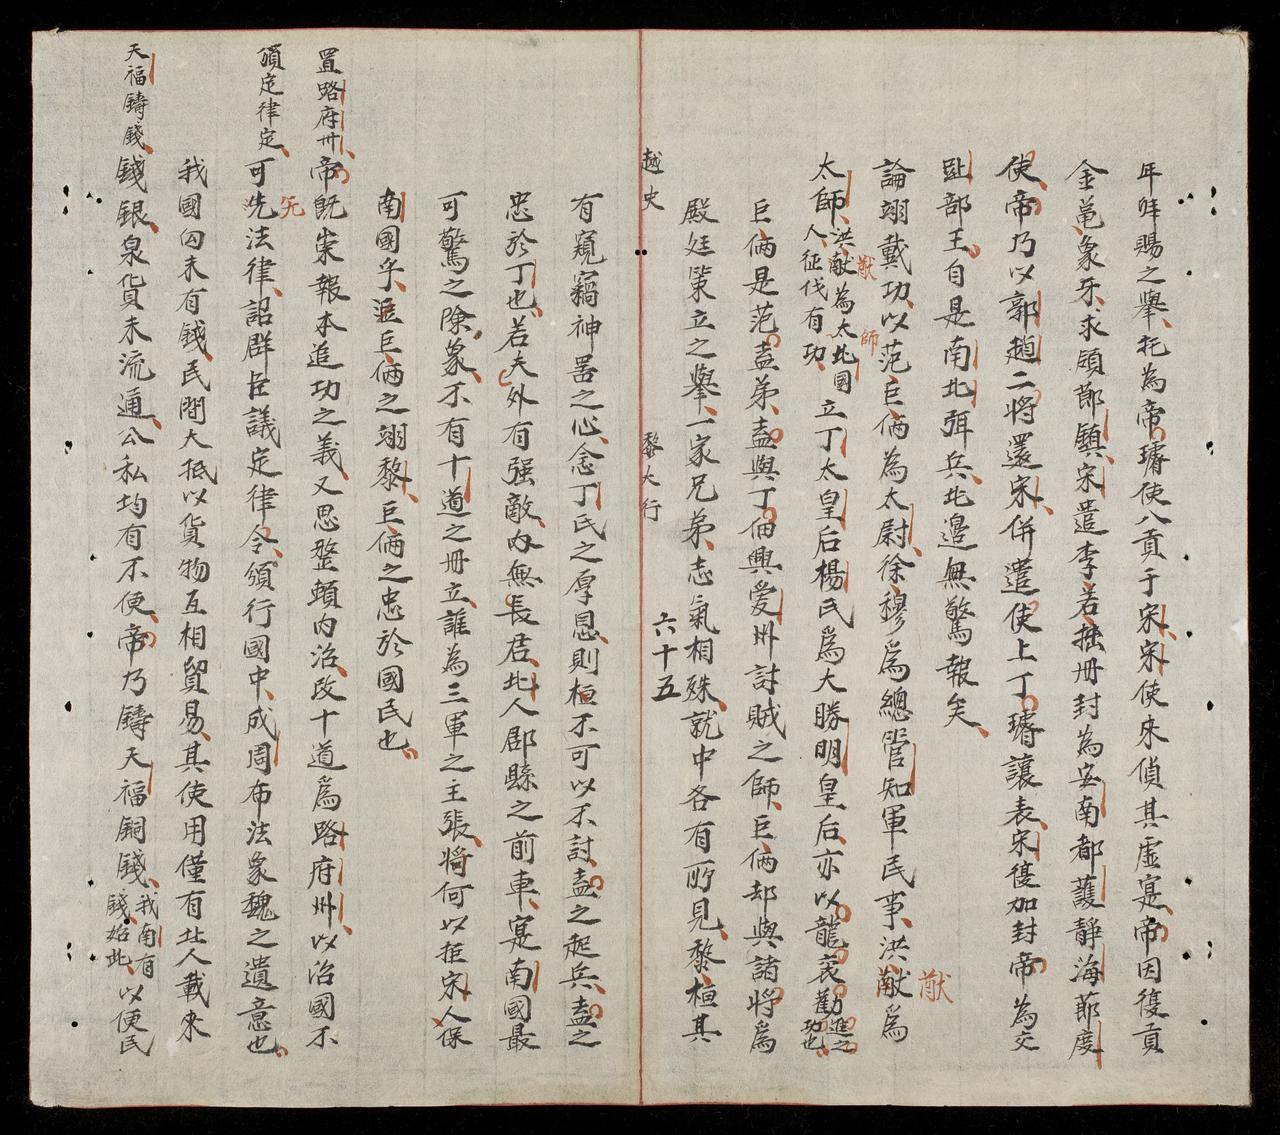 年歸賜之舉、托為帝璿使入貢于宋、宋使來偵其虛寔、帝因復貢
金黾、象牙、求領節鎮、宋遣李若拙冊封為安南都護靜海莭度
使、帝乃以郭趙二將還宋、併遣使上丁璿讓表、宋復加封帝為交
趾部王。自是南北弭兵、北邉無驚報矣、
論翊戴功、以范巨倆為太尉、徐穆為總管知軍民事、洪献為
猷
太師、洪献為太師北國人、征伐有功、立丁太皇后楊氏為大勝明皇后、亦以龍袞勸進之功也、
猷
師
巨倆是范盍弟、盍與丁佃興愛州討賊之師、巨倆却與諸將爲
殿廷策立之舉、一家兄弟、志氣相殊、就中各有所見、黎桓其
越史 黎大行 六十五
有窺竊神噐之心、念丁氏之厚恩、則桓不可以不討、盍之起兵、盍之
忠於丁也、若夫外有强敵、內無長君、北人郡縣之前車、寔南國最
可驚之除象、不有十道之冊立、誰為三軍之主張、將何以拒宋人保
南國乎、逗巨倆之翊黎、巨倆之忠於國民也、
置路府州、帝既崇報本追功之義、又思整頓內治、改十道爲路府州、以治國不
頒定律定、可先法律、詔群臣議定律令、頒行國中、成周布法象魏之遺意也、
旡
我國向未有錢、民間大抵以貨物互相貿易、其使用僅有北人載來
天福鑄錢、錢銀、泉貨未流通、公私均有不便、帝乃鑄天福銅錢、我南有錢、始此、以便民